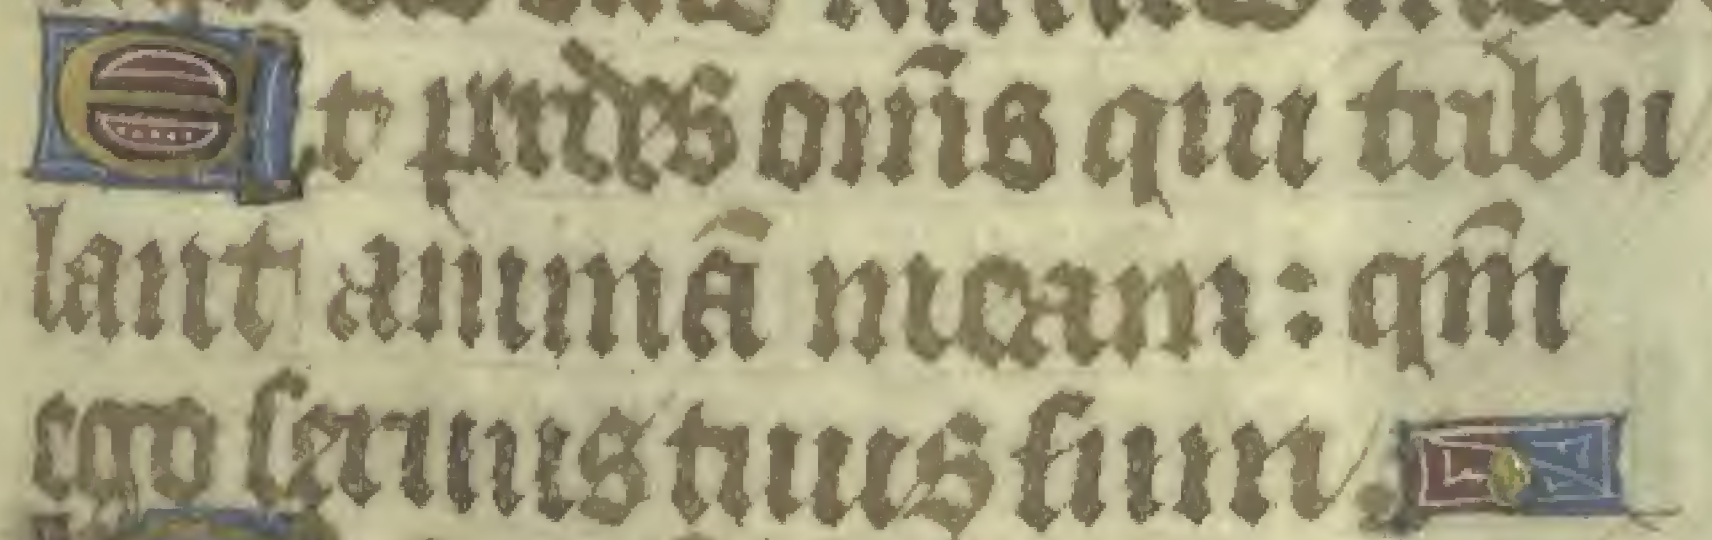 Et perdes om̅s qui tribu
lant animā meam : qm̅
ego seruus tuus sum